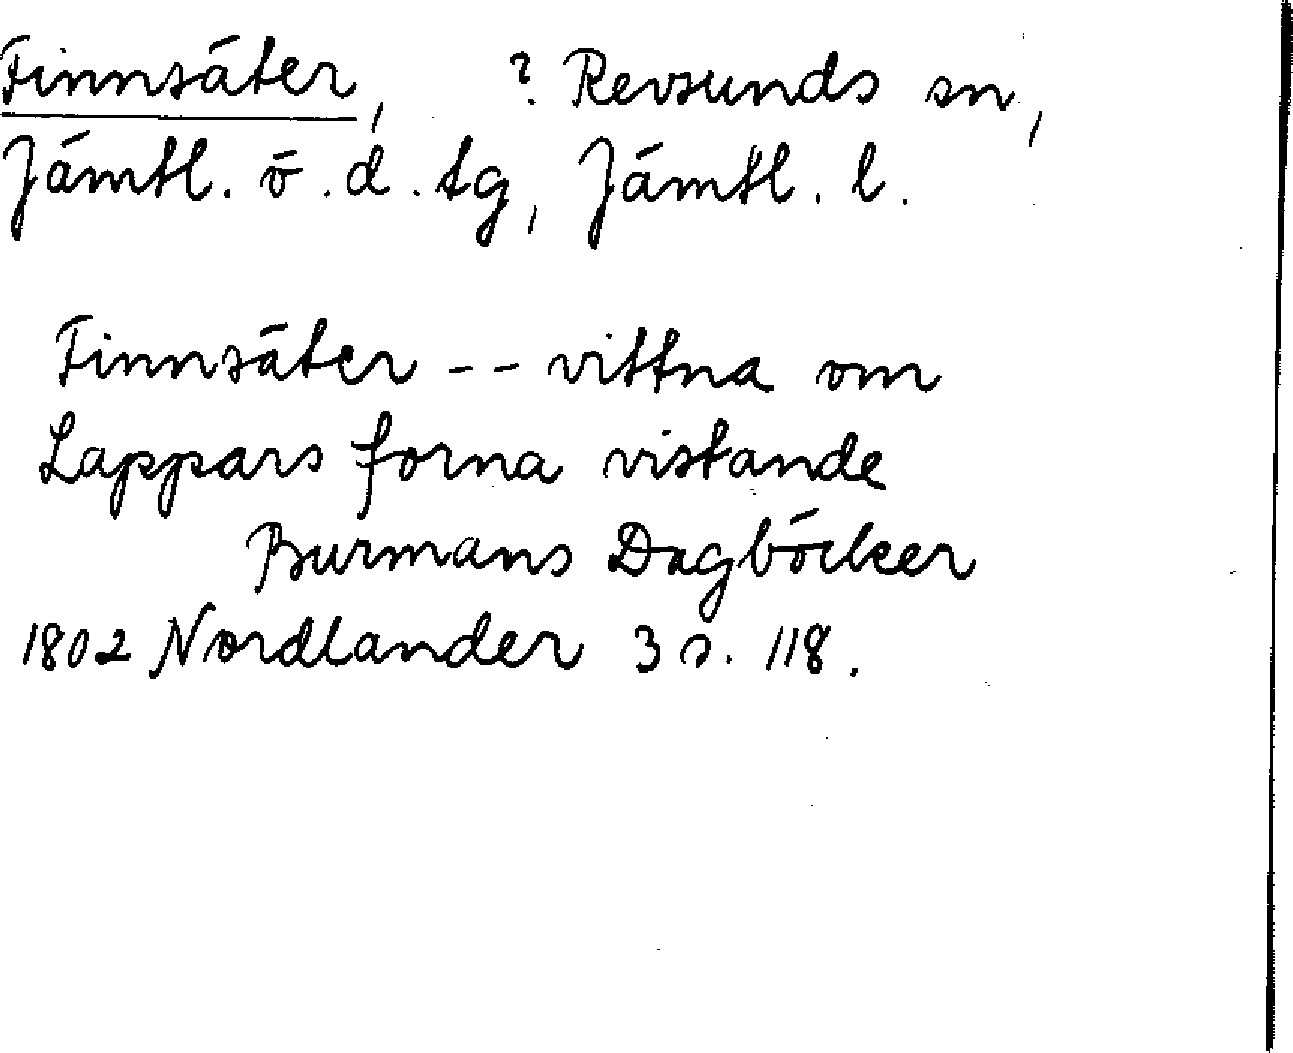 Finnsäter, ? Revsunds sn,
Jämtl. ö. d. tg, Jämtl. l.
Finnsäter -- vittna om
Lappars forna vistande
Burmans Dagböcker
1802 Nordlander 3 s. 118.